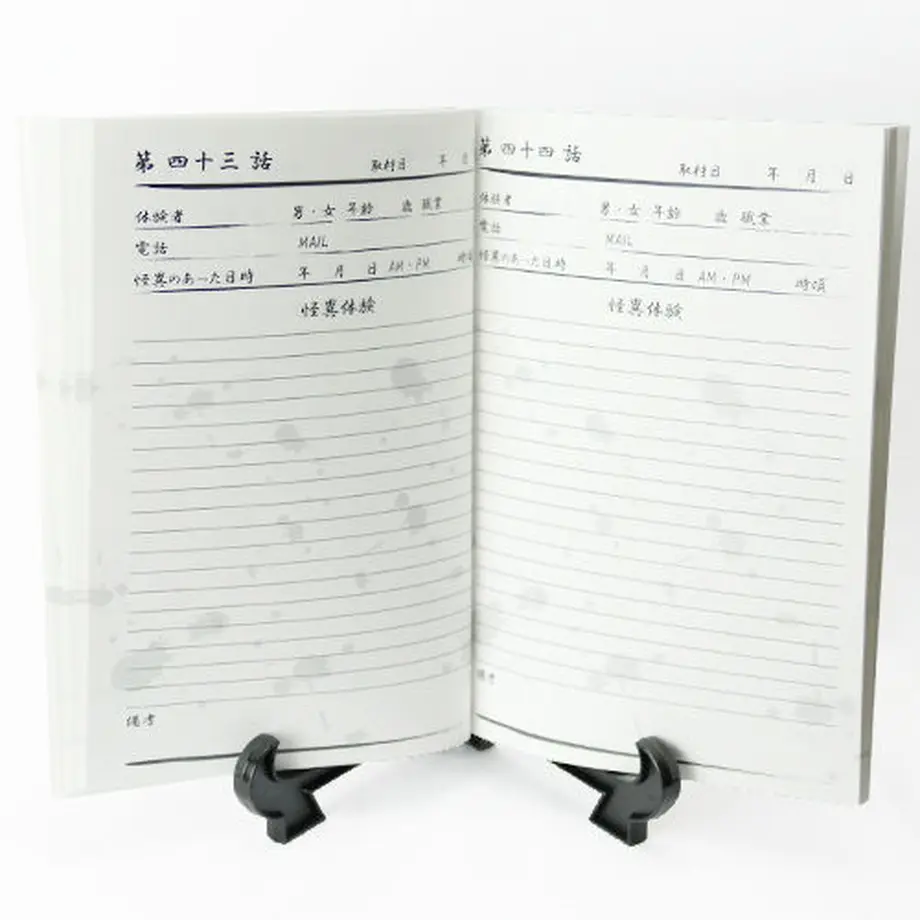 第四十三話
取材日 年 月
体験者 男・女 年齢 歳 職業
電話 MAIL
怪異のあった日時 年 月 日 AM・PM 時頃
怪異体験
備考
第四十四話
取材日 年 月 日
体験者 男・女 年齢 歳 職業
電話 MAIL
怪異のあった日時 年 月 日 AM・PM 時頃
怪異体験
備考